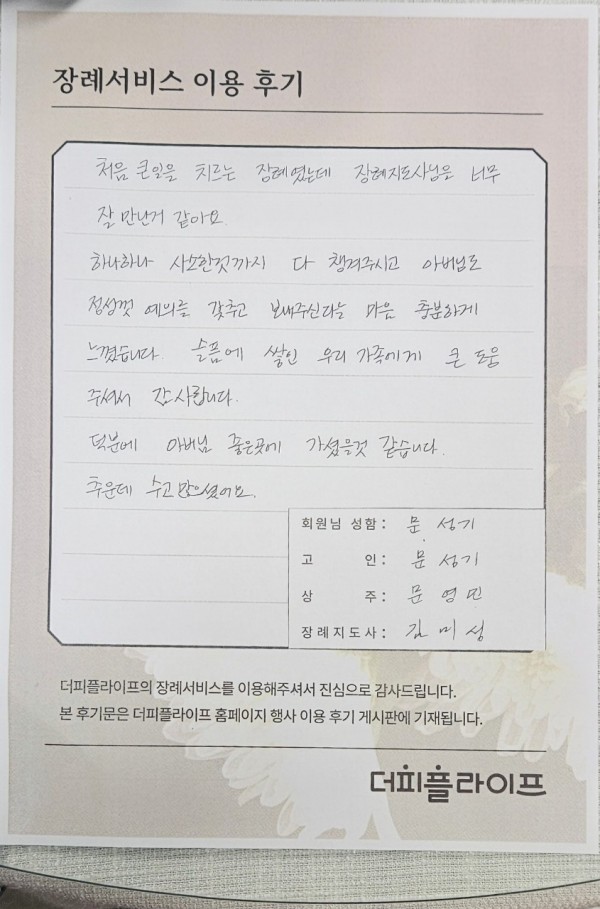 장례서비스 이용 후기
처음 큰일을 치르는 장례였는데 장례지도사님을 너무
잘 만난거 같아요.
하나하나 사소한것까지 다 챙겨주시고 아버님도
정성껏 예의를 갖추고 보내주신다는 마음 충분하게
느꼈습니다 슬픔에 쌓인 우리 가족에게 큰 도움
주셔서 감사합니다.
덕분에 아버님 좋은곳에 가셨을것 같습니다.
추운데 수고 많으셨어요.
회원님 성함: 문성기
고 인: 문성기
상 주: 문영민
장례지도사: 김미성
더피플라이프의 장례서비스를 이용해주셔서 진심으로 감사드립니다.
본 후기문은 더피플라이프 홈페이지 행사 이용 후기 게시판에 기재됩니다.
더피플라이프